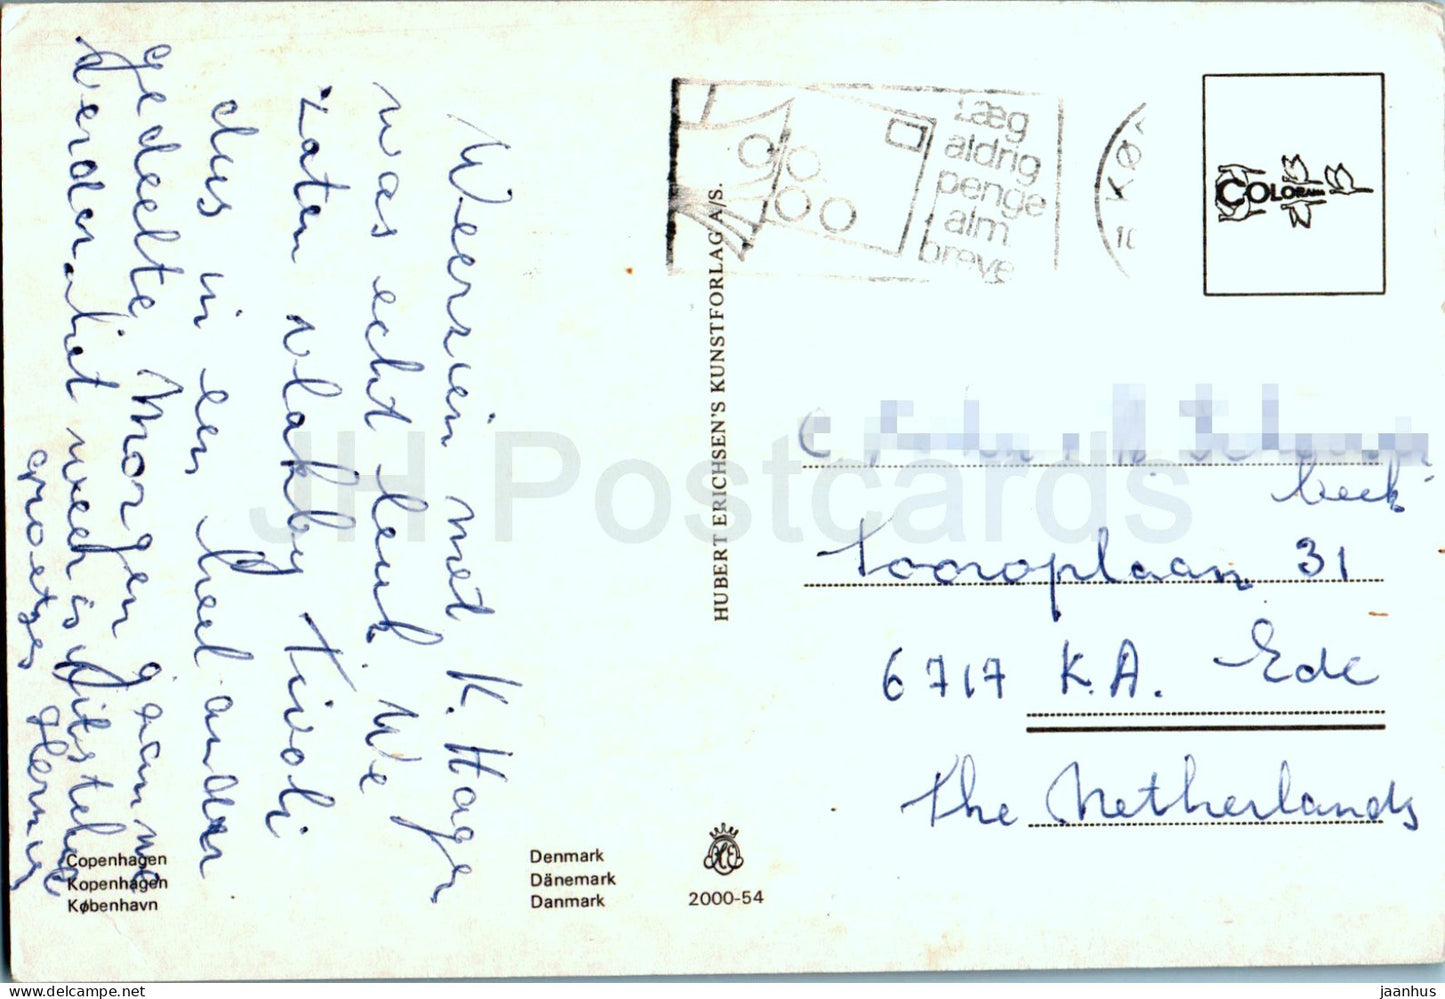 Weerzien met K. Hager
was echt leuk. We
zaten vlakby Tivoli
dus in een heel ander
gedeelte. Morgen gaan we
verder. Het weer is uitstekend
groetjes
Copenhagen
Kopenhagen
København
Denmark
Dänemark
Danmark
2000-54
HUBERT ERICHSEN'S KUNSTFORLAG A/S.
Læg
aldrig
penge
i alm
breve
KØ
10
COLORAMA
C
beek
Tooroplaan 31
6717 K.A. Ede
The Netherlands
JH Postcards
www.delcampe.net
jaanhus